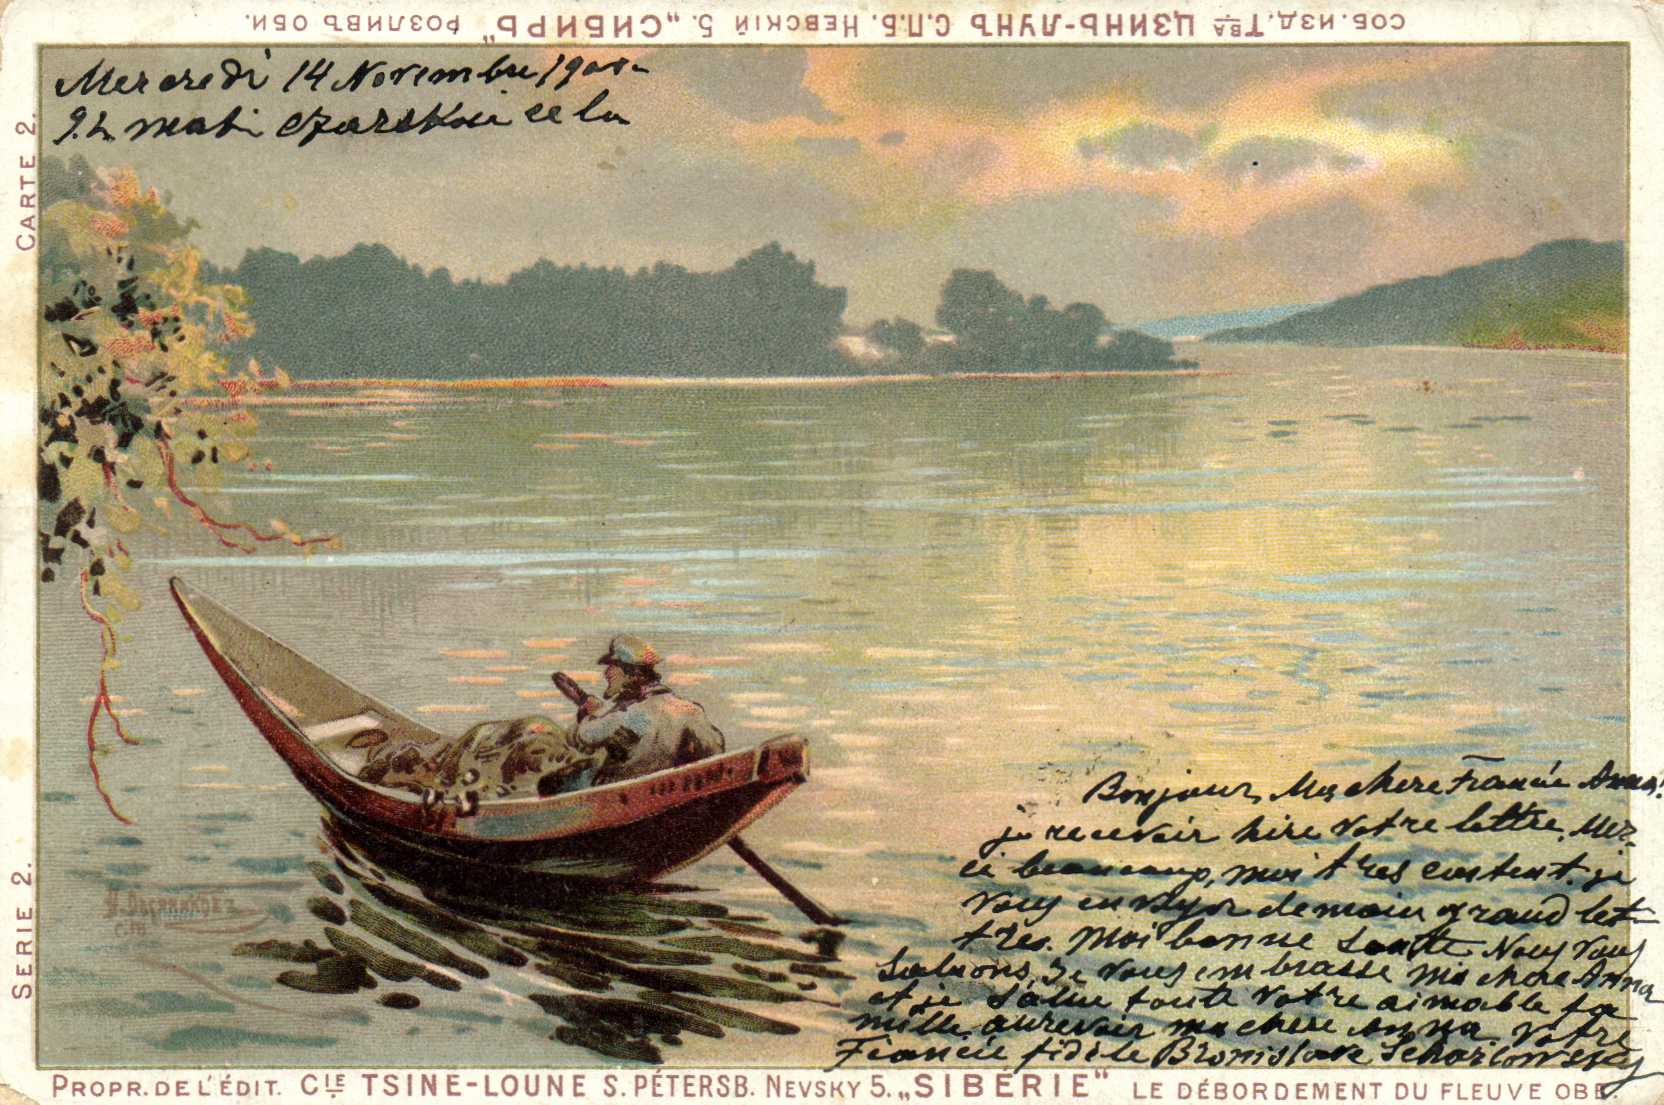 СОБ. ИЗД. Тва ЦЗИНЬ-ЛУНЬ С.П.Б. НЕВСКІЙ 5. „СИБИРЬ" РОЗЛИВЪ ОБИ.
Mercredi 14 Novembre 190
9.h mati czarskoie celu
CARTE 2.
SERIE 2.
Bonjour, Ma chere Fiancée Anna!
je recevoir hire votre lettre. Mer-
ci beaucoup, moi très content. je
vous envoyer demain grand let-
tres. Moi bonne Santte Nous vous
Saluons, Je vous embrasse ma chere Anna
et je Salue toute votre aimable fa
mille, aurevoir ma chere Anna. Votre
Fiancée fidèle Bronislave
PROPR. DE L'ÉDIT. CIE TSINE-LOUNE S. PÉTERSB. NEVSKY 5. „SIBÉRIE" LE DÉBORDEMENT DU FLEUVE OBE.